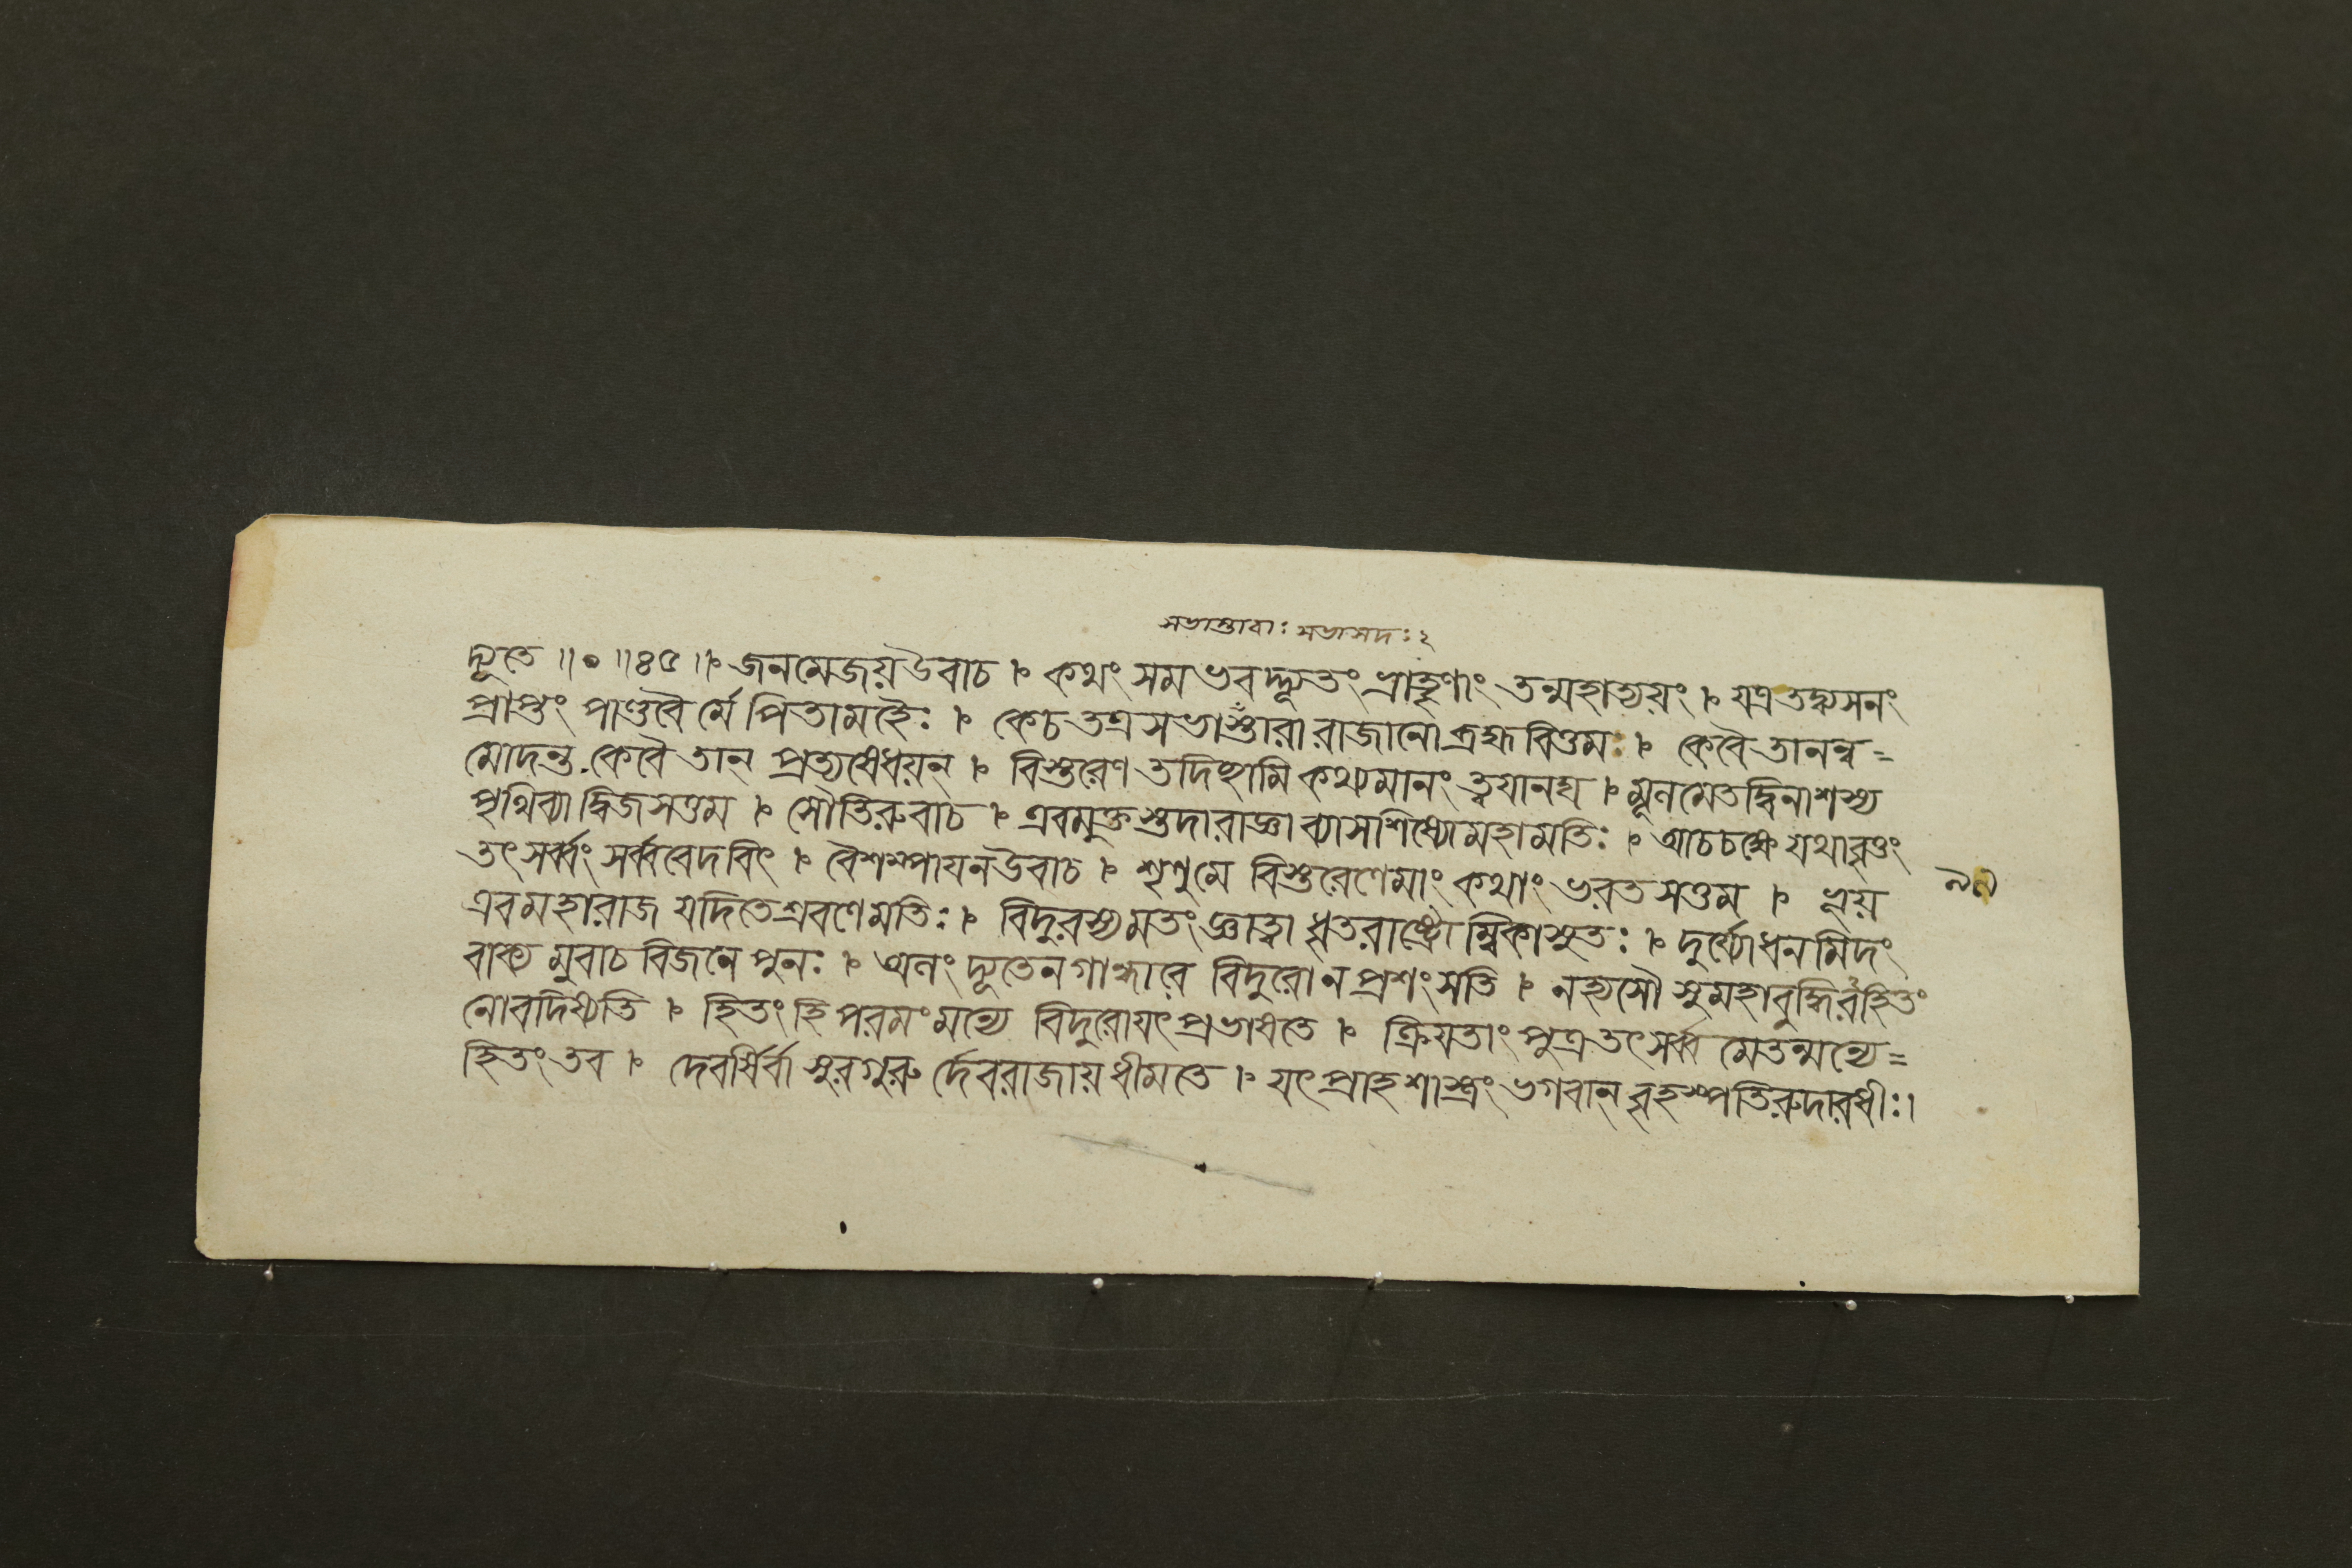 সভাস্তারাঃ সভাসদঃ ২
দ্যূতে ॥০॥৪৫॥ জনমেজয়উবাচ । কথং সমভবদ্দ্যূতং ভ্রাতৄণাং তন্মহাত্যয়ং । যত্রতদ্ব্যসনং
প্রাপ্তং পাণ্ডবৈর্মে পিতামহৈঃ । কেচ তত্র সভাস্তারা রাজানো ব্রহ্মবিত্তম । কেবৈ তানন্ব=
মোদন্ত কেবৈ তান্ প্রত্যষেধয়ন্ । বিস্তরেণ তদিচ্ছামি কথ্যমানং ত্বয়ানঘ । মূলমেতদ্বিনাশস্য
পৃথিব্যা দ্বিজসত্তম । সৌতিরুবাচ । এবমুক্তস্তদারাজ্ঞা ব্যাসশিষ্যোমহামতিঃ । আচচক্ষে যথাবৃত্তং
তৎ সর্ব্বং সর্ব্ববেদবিৎ । বৈশম্পায়নউবাচ । শৃণুমে বিস্তরেণেমাং কথাং ভরতসত্তম । ভূয়
৯৯
এবমহারাজ যদিতেশ্রবণেমতিঃ । বিদুরস্যমতং জ্ঞাত্বা ধৃতরাষ্ট্রোম্বিকাসুতঃ । দুর্য্যোধনমিদং
বাক্য মুবাচ বিজনে পুনঃ । অলং দ্যূতেনগান্ধারে বিদুরোনপ্রশংসতি । নহ্যসৌ সুমহাবুদ্ধিরহিতং
নোবদিষ্যতি । হিতং হি পরমংমন্যে বিদুরোযৎ প্রভাষতে । ক্রিয়তাং পুত্র তৎসর্ব্ব মেতন্মন্যে=
হিতং তব । দেবর্ষির্বাসুরগুরু র্দেবরাজায়ধীমতে । যৎ প্রাহশাস্ত্রং ভগবান্ বৃহস্পতিরুদারধীঃ।